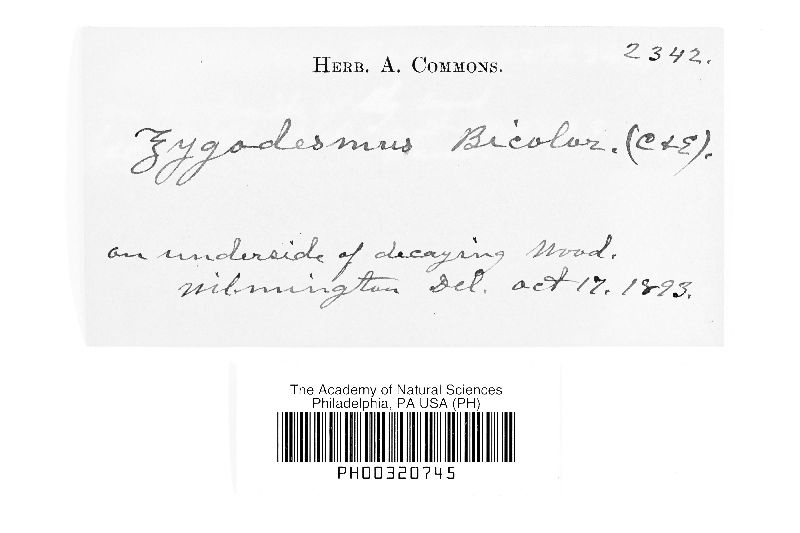 2342.
HERB. A. COMMONS.
Zygodesmus Bicolor. (C&E).
on underside of decaying wood.
Wilmington Del. Oct 17. 1893.
The Academy of Natural Sciences
Philadelphia, PA USA (PH)
PH00320745